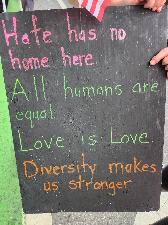 Hate has no
home here.
All humans are
equal
Love is Love.
Diversity makes
us stronger